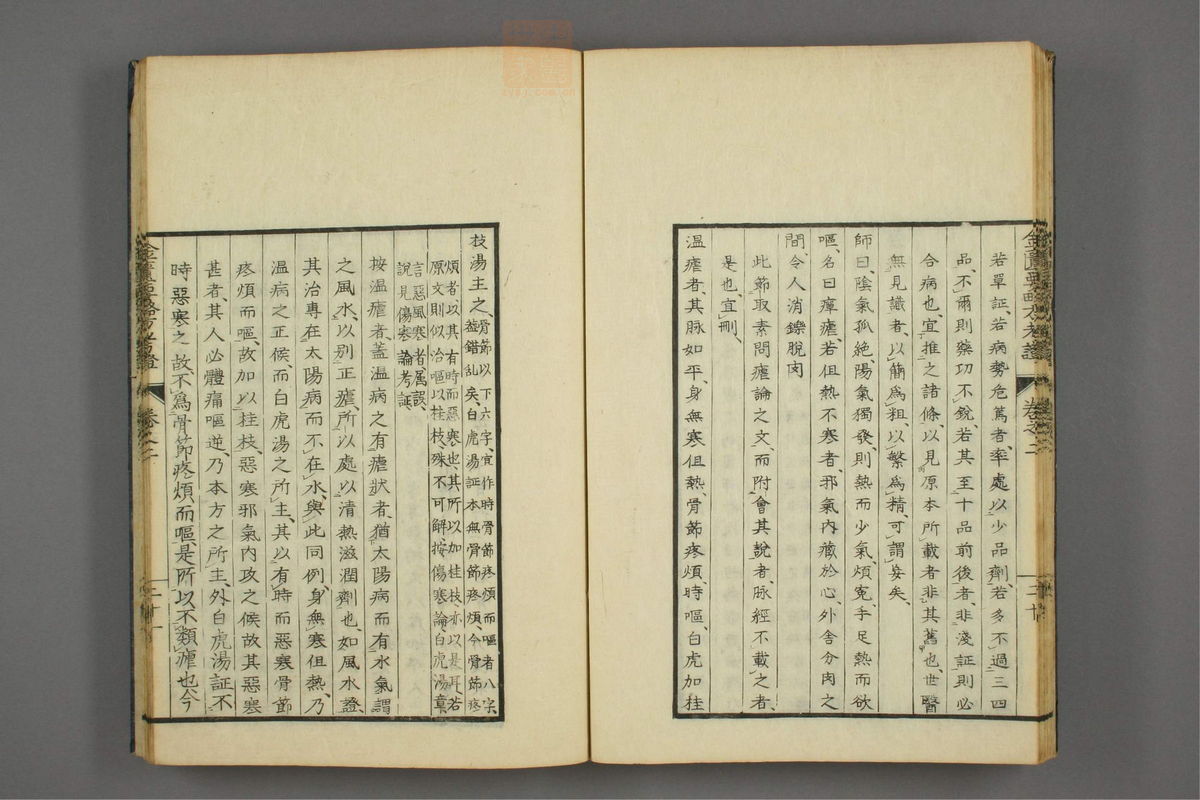 若單証、若病勢危篤者、率處以少品劑、若多不過三四
品、不爾則藥功不銳、若其至十品前後者、非淺証則必
合病也、宜推之諸條、以見原本所載者非其舊也、世醫
無見識者、以簡爲粗、以繁爲精、可謂妄矣、
師曰、陰氣孤絕、陽氣獨發、則熱而少氣、煩冤、手足熱而欲
嘔、名曰癉瘧、若但熱不寒者、邪氣內藏於心、外舍分肉之
間、令人消鑠脫肉
此節取素問瘧論之文、而附會其說者、脉經不載之者、
是也、宜刪、
溫瘧者、其脉如平、身無寒但熱、骨節疼煩、時嘔、白虎加桂
枝湯主之、骨節以下六字、宜作時骨節疼煩而嘔者八字
蓋錯亂矣、白虎湯証本無骨節疼煩、今骨節疼
煩者、以其有時而惡寒也、其所以加桂枝、亦以是耳、若
原文則似治嘔以桂枝、殊不可解、按傷寒論白虎湯章
言惡風寒者屬誤、
說見傷寒論考証、
按溫瘧者、蓋溫病之有瘧狀者、猶太陽病而有水氣謂
之風水、以別正瘧、所以處以清熱滋潤劑也、如風水證、
其治專在太陽病而不在水、與此同例、身無寒但熱、乃
溫病之正候、而白虎湯之所主、其以有時而惡寒骨節
疼煩而嘔、故加以桂枝、惡寒邪氣內攻之候、故其惡寒
甚者、其人必體痛嘔逆、乃本方之所主、外白虎湯証不
時惡寒之故不爲骨節疼煩而嘔、是所以不類瘧也、今
金匱要略方考證
卷之二
二十
金匱要略方考證
卷之二
二十一